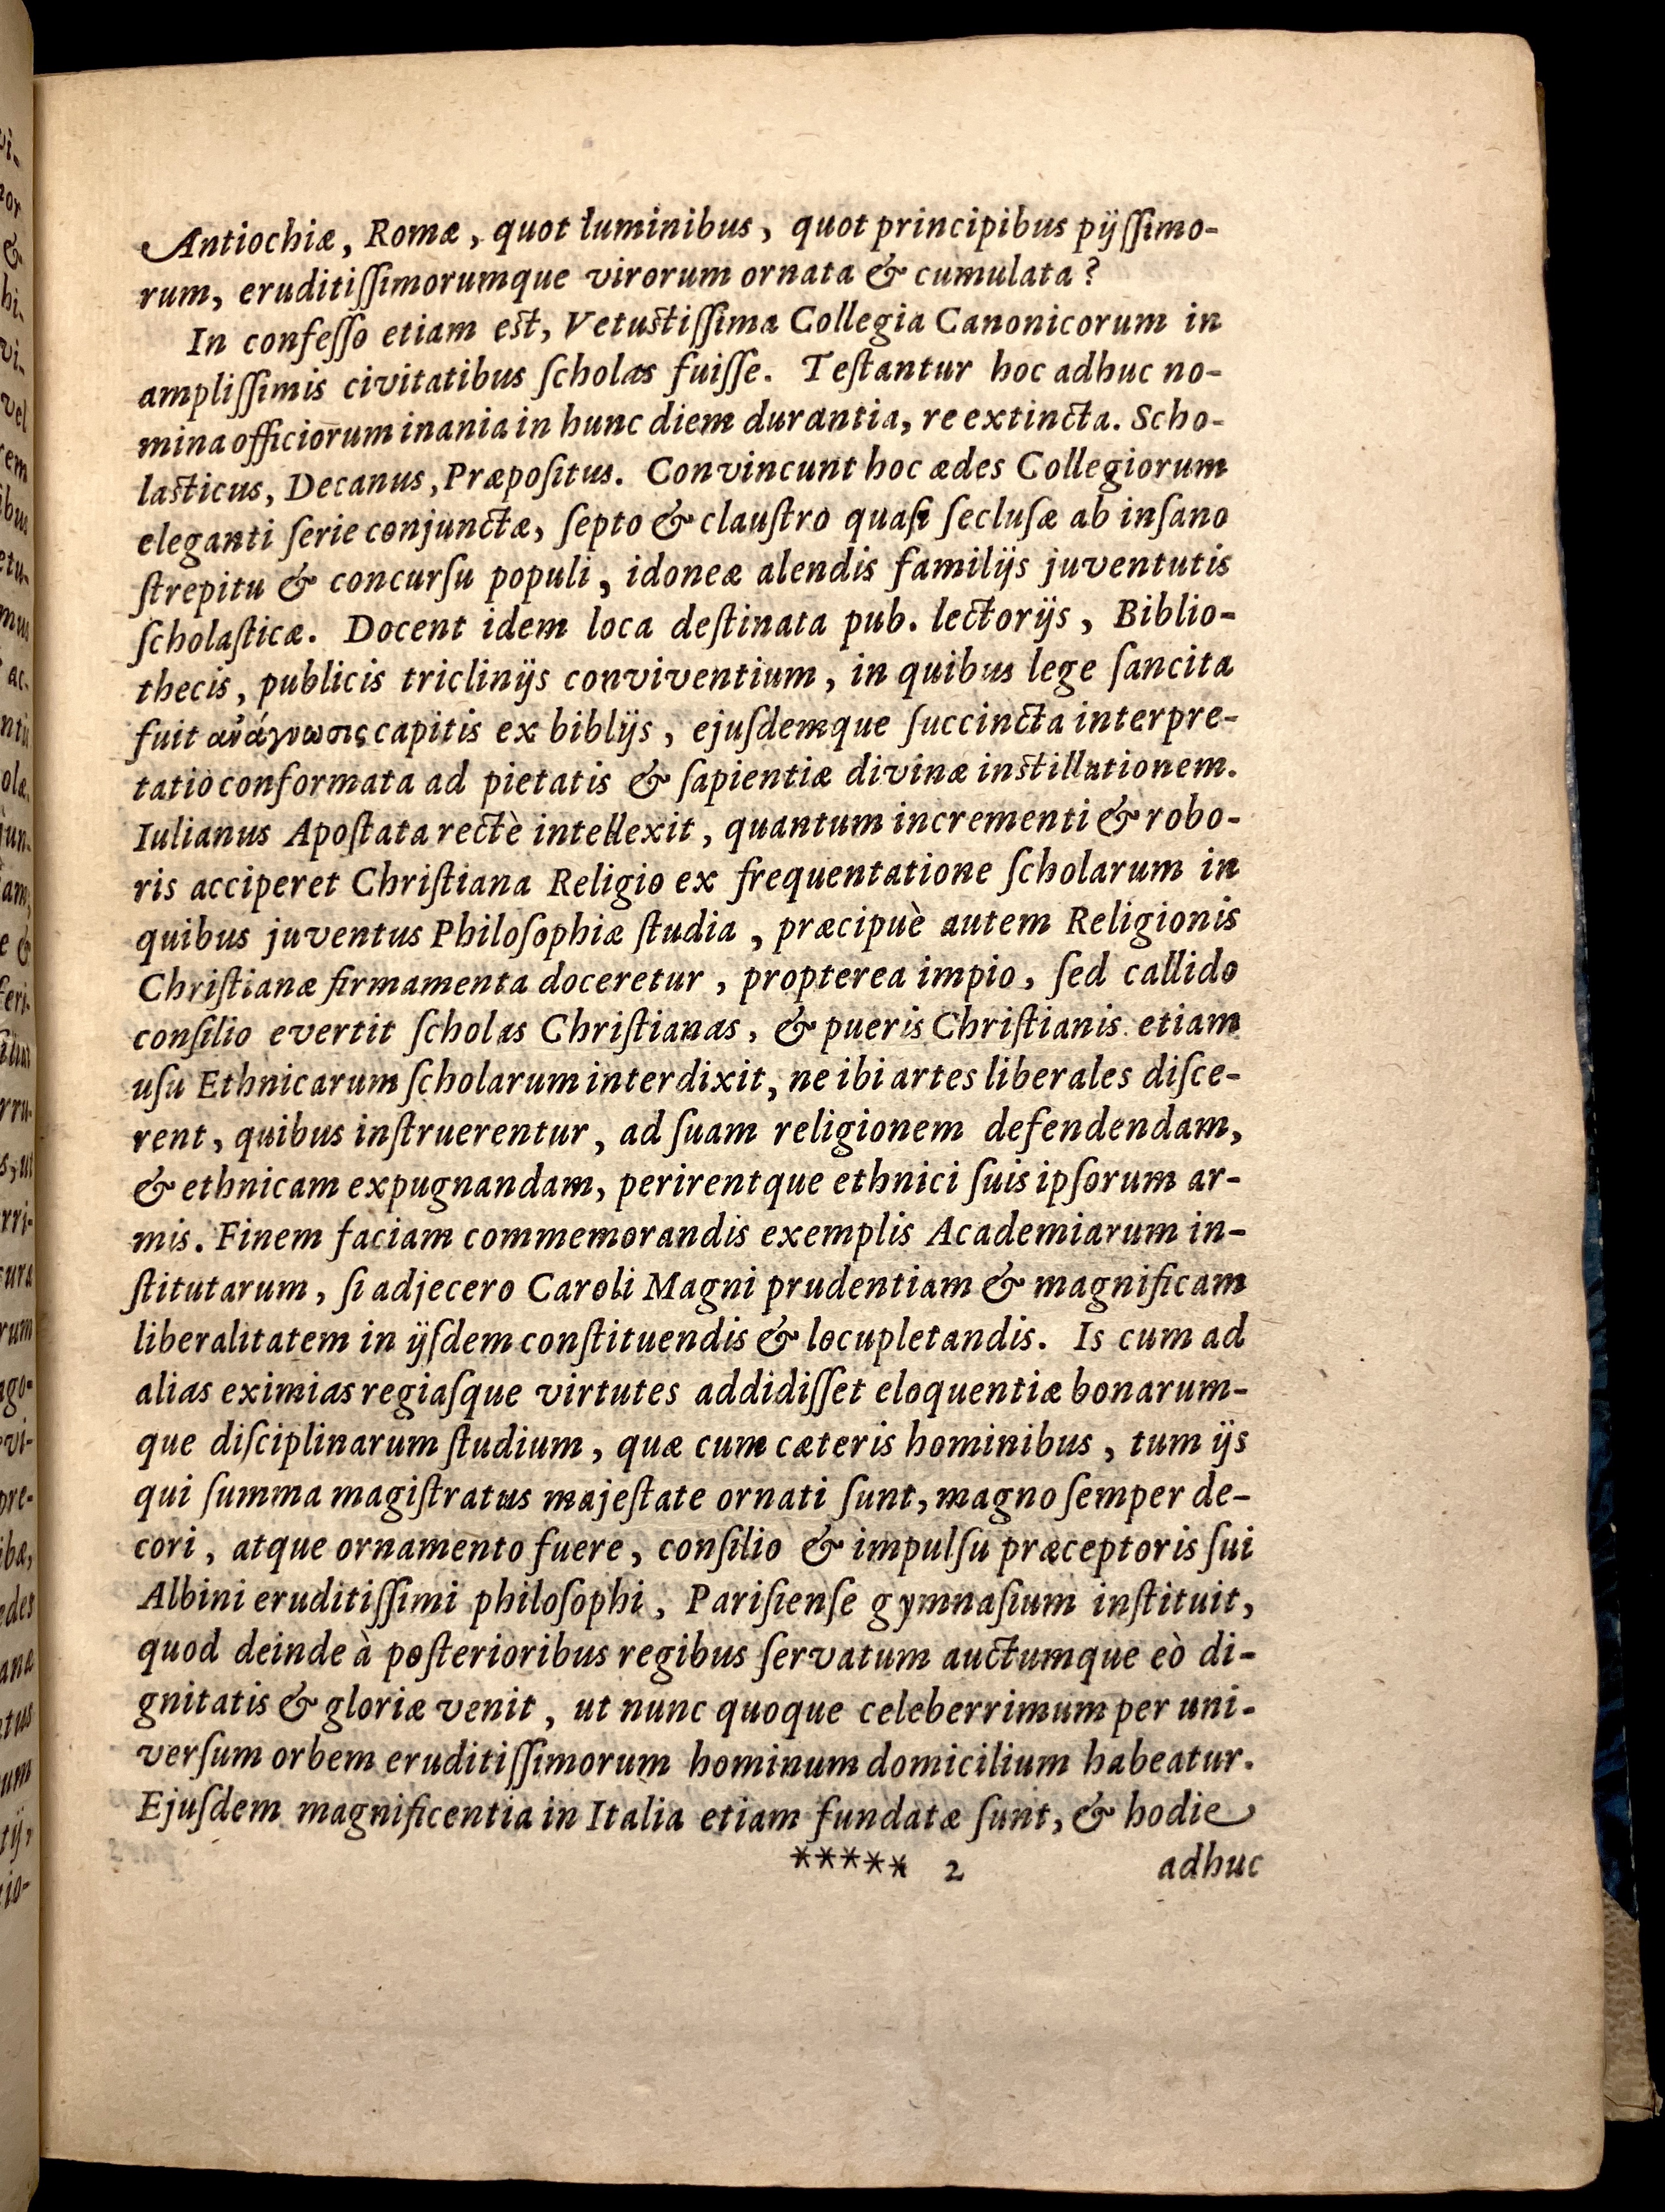 Antiochiæ, Romæ, quot luminibus, quot principibus pijſſimo-
rum, eruditiſſimorumque virorum ornata & cumulata?
In confeſſo etiam est, Vetustiſſima Collegia Canonicorum in
ampliſſimis civitatibus ſcholas fuiſſe. Teſtantur hoc adhuc no-
mina officiorum inania in hunc diem durantia, re extincta. Scho-
lasticus, Decanus, Præpoſitus. Convincunt hoc ædes Collegiorum
eleganti ſerie conjunctæ, ſepto & clauſtro quaſi ſecluſæ ab inſano
ſtrepitu & concurſu populi, idoneæ alendis familijs juventutis
ſcholaſticæ. Docent idem loca deſtinata pub. lectorijs, Biblio-
thecis, publicis triclinijs conviventium, in quibus lege ſancita
fuit ανάγνωσις capitis ex biblijs, ejuſdemque ſuccincta interpre-
tatio conformata ad pietatis & ſapientiæ divinæ instillationem.
Iulianus Apoſtata rectè intellexit, quantum incrementi & robo-
ris acciperet Chriſtiana Religio ex frequentatione ſcholarum in
quibus juventus Philoſophiæ ſtudia, præcipuè autem Religionis
Chriſtianæ firmamenta doceretur, propterea impio, ſed callido
conſilio evertit ſcholas Chriſtianas, & pueris Chriſtianis etiam
uſu Ethnicarum ſcholarum interdixit, ne ibi artes liberales diſce-
rent, quibus inſtruerentur, ad ſuam religionem defendendam,
& ethnicam expugnandam, perirentque ethnici ſuis ipſorum ar-
mis. Finem faciam commemorandis exemplis Academiarum in-
ſtitutarum, ſi adjecero Caroli Magni prudentiam & magnificam
liberalitatem in ijſdem conſtituendis & locupletandis. Is cum ad
alias eximias regiaſque virtutes addidiſſet eloquentiæ bonarum-
que diſciplinarum ſtudium, quæ cum cæteris hominibus, tum ijs
qui ſumma magiſtratus majeſtate ornati ſunt, magno ſemper de-
cori, atque ornamento fuere, conſilio & impulſu præceptoris ſui
Albini eruditiſſimi philoſophi, Pariſienſe gymnaſium inſtituit,
quod deinde à poſterioribus regibus ſervatum auctumque eò di-
gnitatis & gloriæ venit, ut nunc quoque celeberrimum per uni-
verſum orbem eruditiſſimorum hominum domicilium habeatur.
Ejuſdem magnificentia in Italia etiam fundatæ ſunt, & hodie
***** 2 adhuc